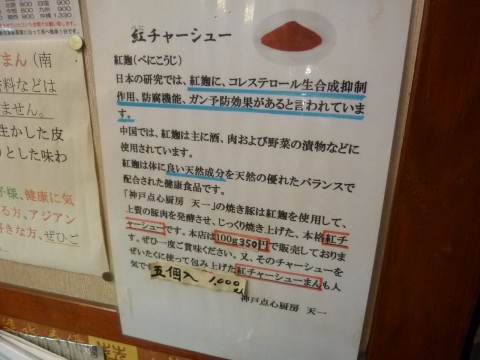 四国 800
九州 900
沖縄 1,330
まん(南
料などは
ません。
生かした皮
りとした味わ
子様、健康に気
る方、アジアン
きな方、ぜひご
紅チャーシュー
紅麹(べにこうじ)
日本の研究では、紅麹に、コレステロール生合成抑制
作用、防腐機能、ガン予防効果があると言われていま
す。
中国では、紅麹は主に酒、肉および野菜の漬物などに
使用されています。
紅麹は体に良い天然成分を天然の優れたバランスで
配合された健康食品です。
「神戸点心厨房 天一」の焼き豚は紅麹を使用して、
上質の豚肉を発酵させ、じっくり焼き上げた、本格紅チ
ャーシューです。本店は100g350円で販売しておりま
す。ぜひ一度ご賞味ください。又、そのチャーシューを
ぜいたくに使って包み上げた紅チャーシューまんも人
気です
五個入 1,000
神戸点心厨房 天一